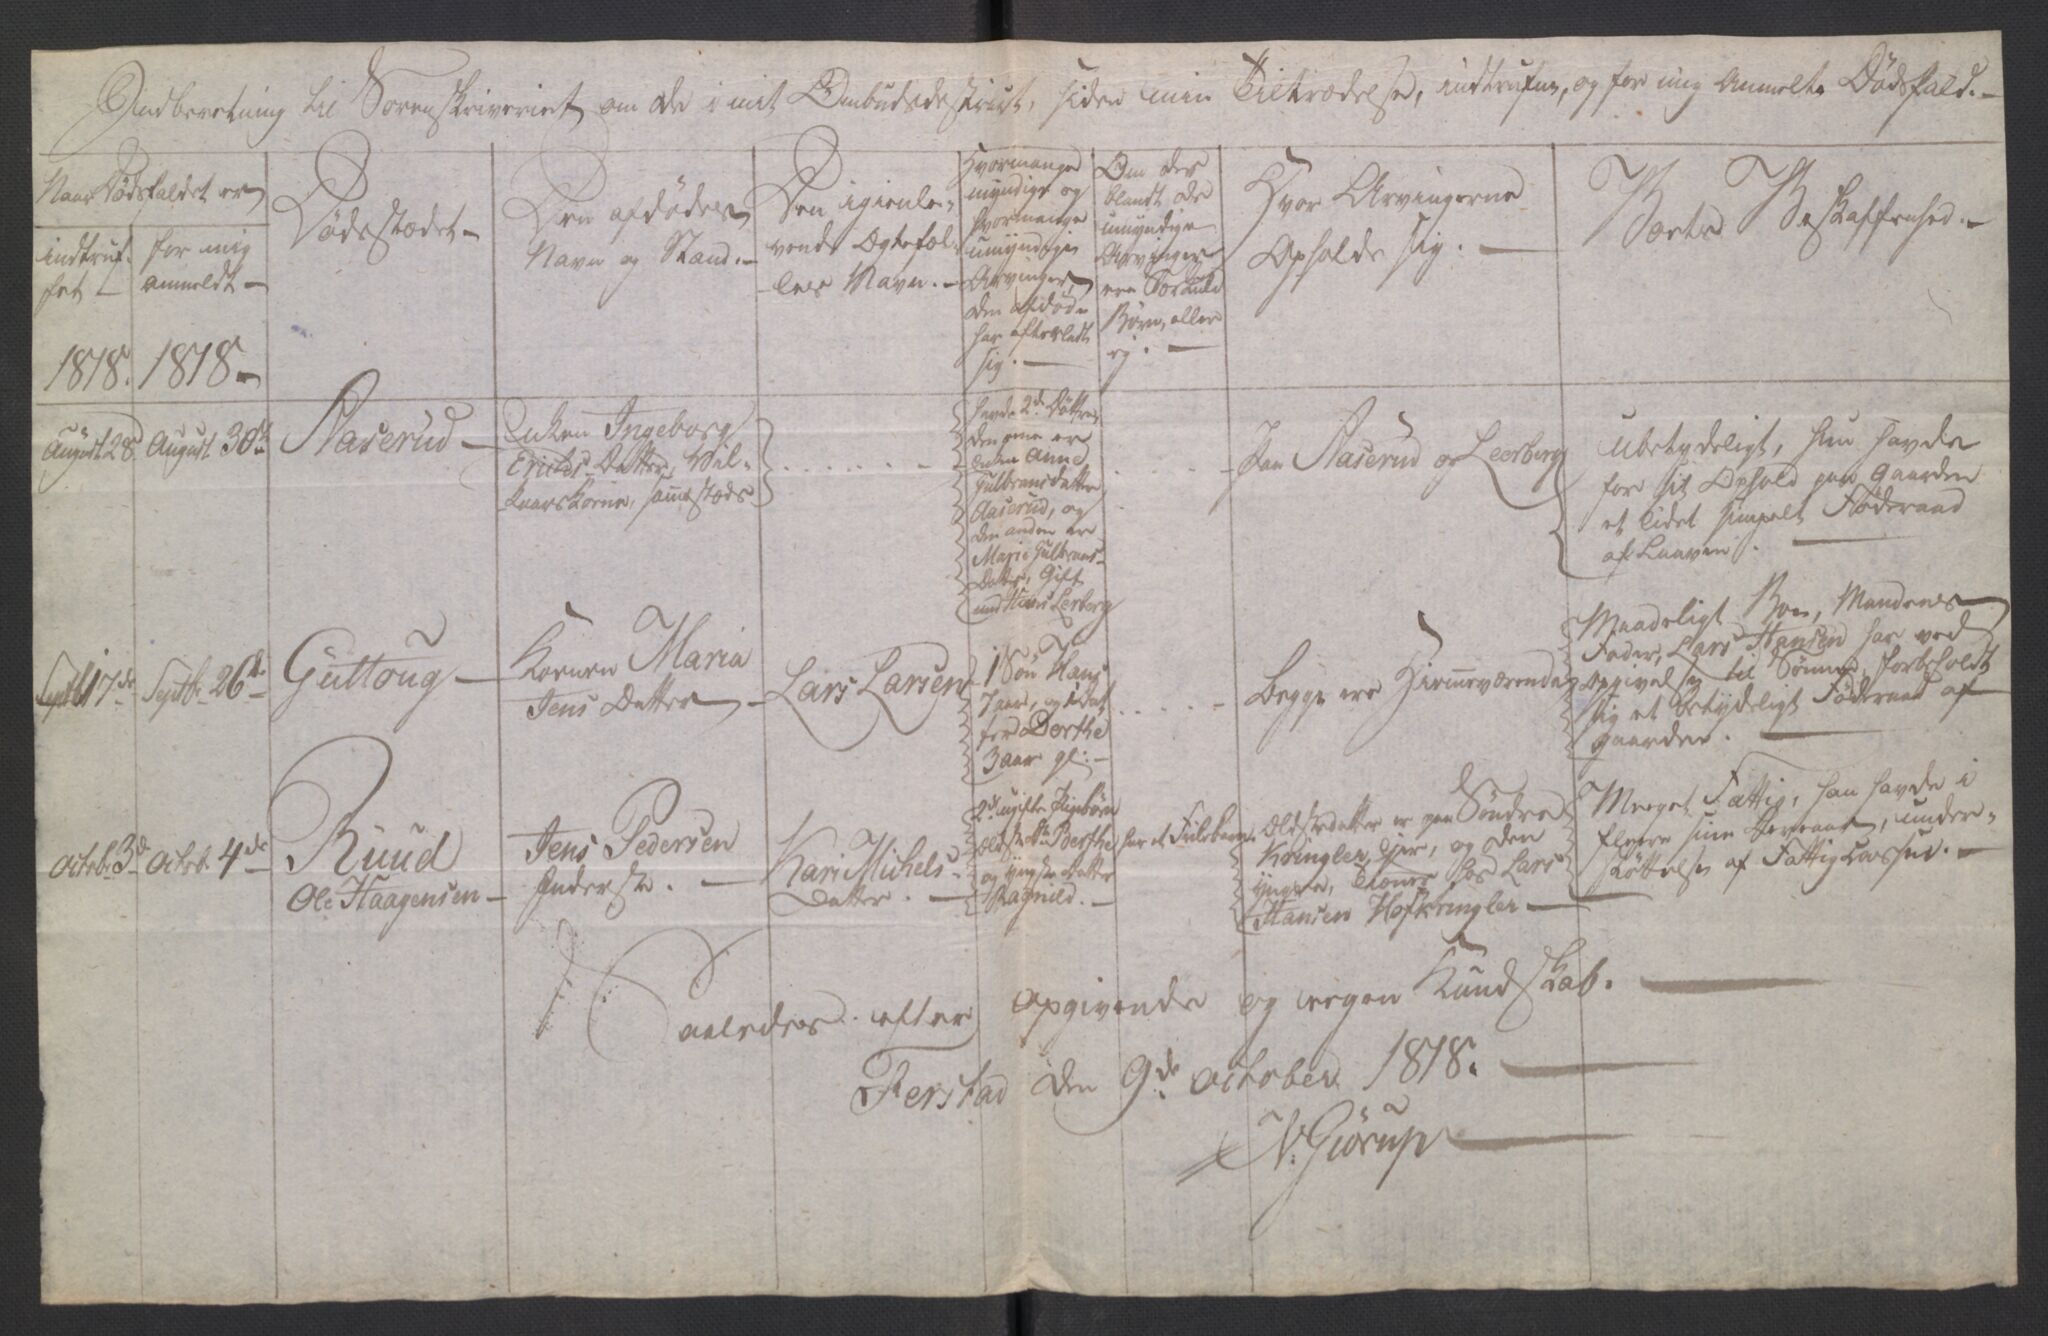 Indberetning til Sorenskriveriet om de i mit Ombudsdestrict, siden min Tiltrædelse, indtrufne, og for mig Anmelte Dødsfald. –
Naar Dødsfaldet er
indtruf-
fet –
for mig
anmeldt –
1818.
1818 –
Dødsstædet –
Den afdødes
Navn og Stand. –
Den igienle-
vende Ægtefæl-
les Navn. –
Hvormange
myndige og
hvormange
umyndige
Arvinger,
den afdøde
har efterladt
sig. –
Om der
blandt de
umyndige
Arvinger
ere Børn, eller
ej. –
Hvor Arvingerne
Opholde sig. –
Boets Beskaffenhed. –
August 28
August 30te
Aaserud –
Enken Ingeborg
Erichs Datter, Vil-
kaarskone, sammestæds
havde 2de Døttre,
den eene er
Enken Anne
Gulbransdatter
Aaserud, og
den anden er
Marie Gulbrans-
Datter, Gift
med Hans Lerberg
Paa Aaserud og Leerberg
Ubetydeligt, hun havde
for sit Ophold paa Gaarden
et lidet simpelt Føderaad
af Laaven. –
Septb 17de
Septbr 26de
Guttoug –
Konen Maria
Jens Datter –
Lars Larsen
1 Søn Hans
7 aar, og 1 Dat
ter Berthe
3 aar gl: –
Begge ere Hiemmeværende
Maadeligt Boe, Mandens
Fader, Lars Hansen har ved
Opgivelse til Sønnen, forbeholdt
sig et betydeligt Føderaad af
Gaarden. –
Octobr 3de
Octob. 4de
Ruud
Ole Haagensen –
Jens Pedersen
Inderste. –
Kari Michels-
Datter. –
2de ugifte Pigebørn
Ældste Berthe
og yngste Datter
Ragnild. –
har et
Ældstedatter er paa Søndre
Kringler Eier, og den
yngere, tiener hos Lars
Hansen Hofkringler –
Meeget Fattig, han havde i
fleere sine Leveaar, under-
støttelse af Fattig Cassen. –
Saaledes efter opgivende og eegen Kundskab. –
Ferstad den 9de October 1818. –
N. Giørup –